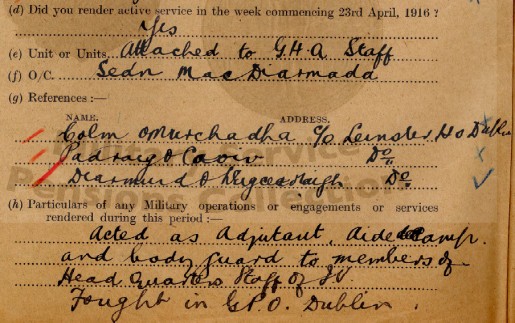 (d) Did you render active service in the week commencing 23rd April, 1916?
Yes
(e) Unit or Units. Attached to GHQ Staff
(f) O/C. Seán MacDiarmada
(g) References:—
NAME. ADDRESS.
Colm OMurchadha c/o Leinster Ho Dublin
Padraig O Caoimh Do.
Diarmuid O Do.
(h) Particulars of any Military operations or engagements or services
rendered during this period:—
Acted as Adjutant, Aide de Camp
and body guard to members of
Head Quarters Staff of
Fought in G.P.O. Dublin.